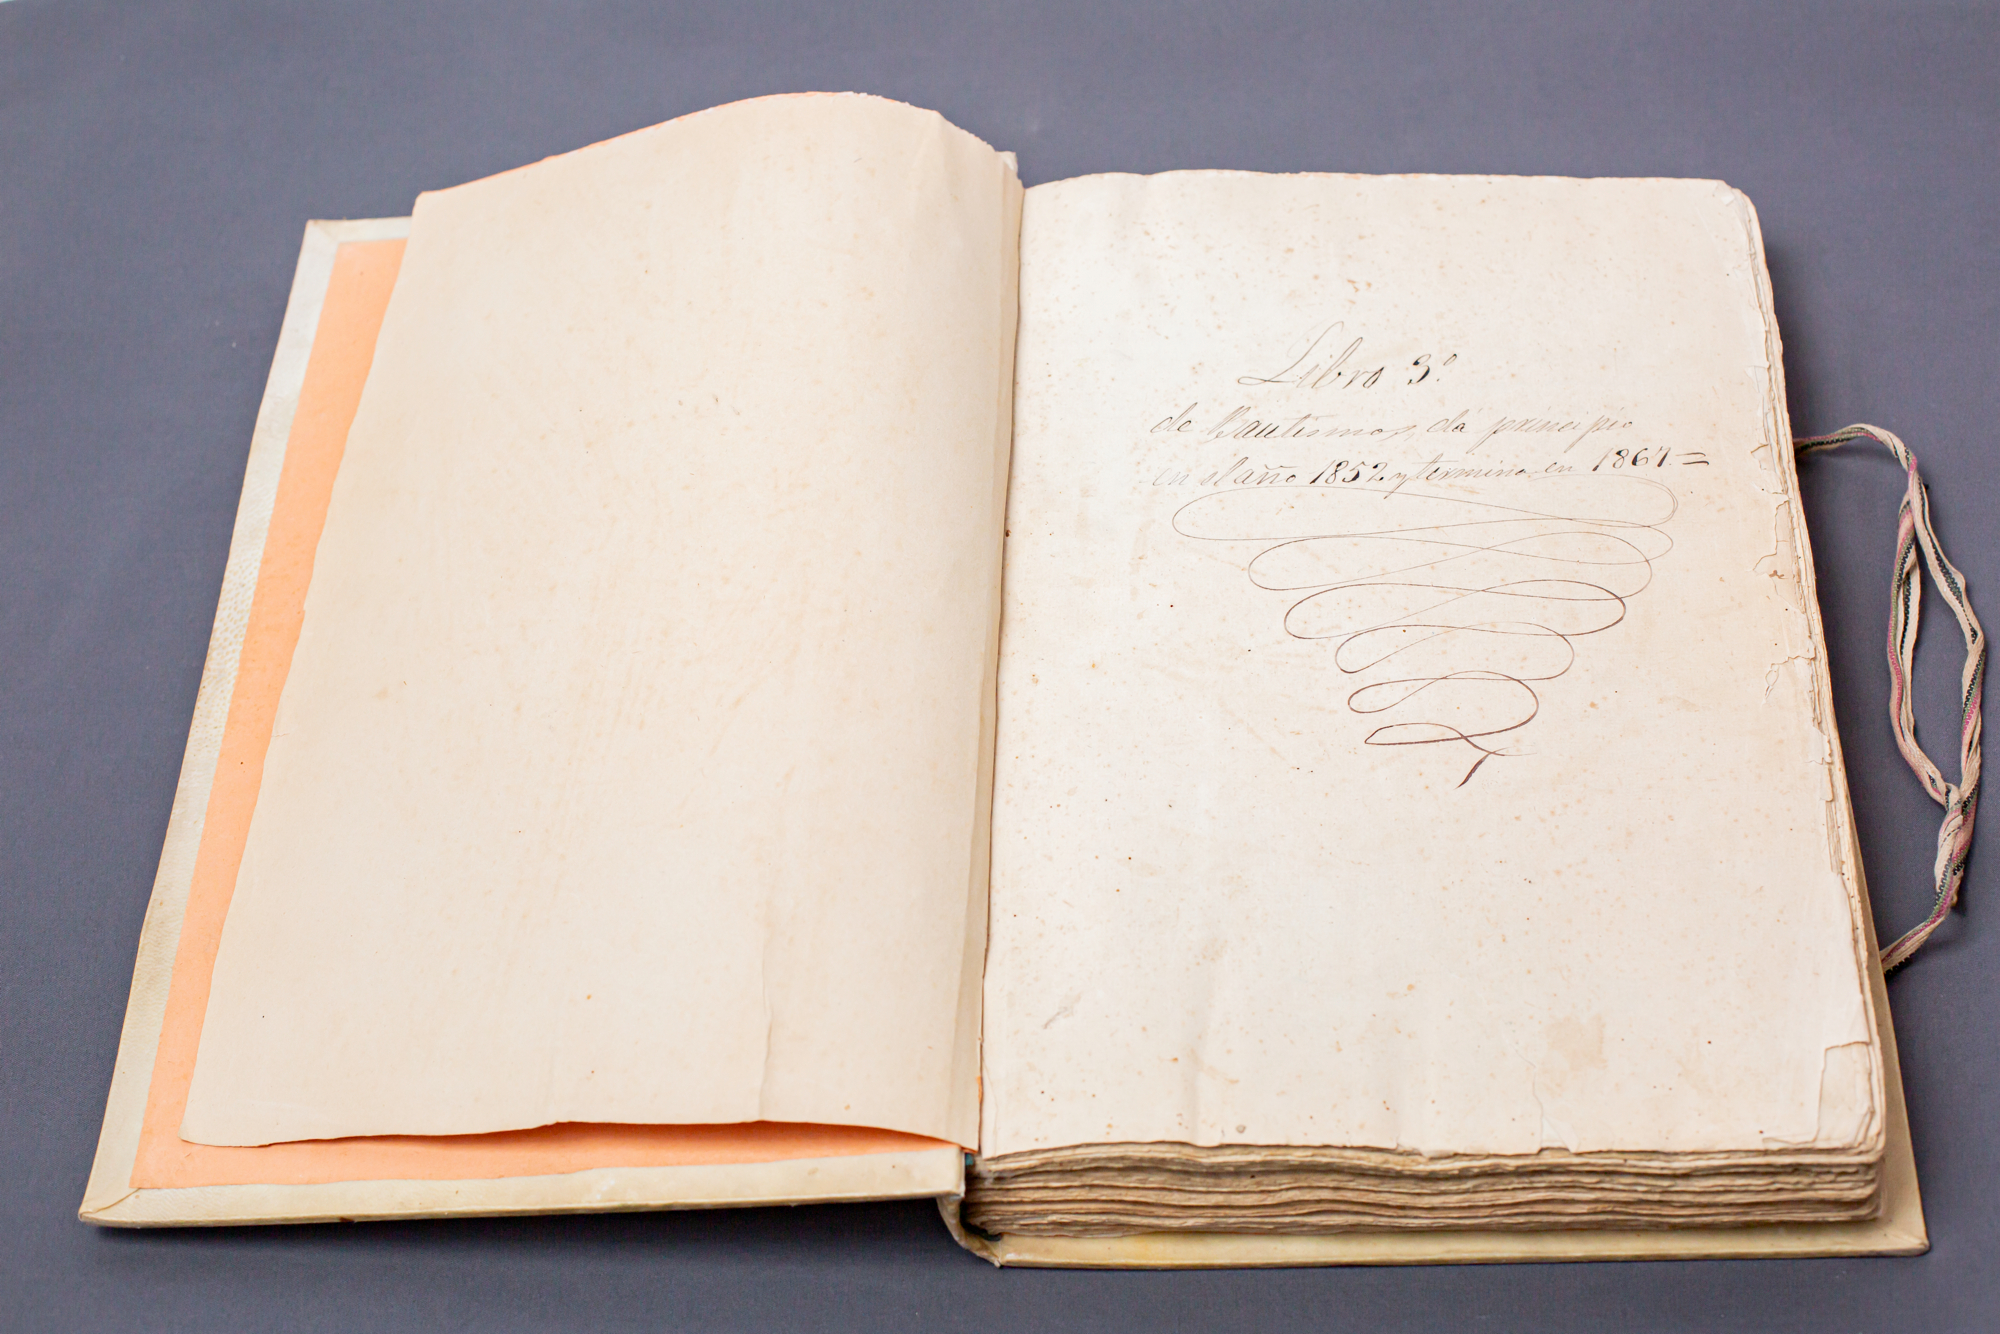 Libro 3º
de Bautismos, da principio
en el año 1852 y termina en 1867.=